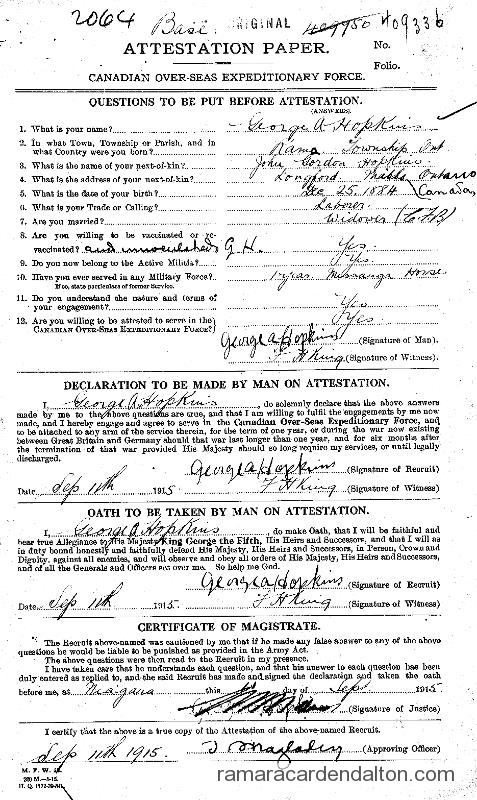 2064 Base ORIGINAL 409950 409336
ATTESTATION PAPER. No.
Folio.
CANADIAN OVER-SEAS EXPEDITIONARY FORCE.
QUESTIONS TO BE PUT BEFORE ATTESTATION.
(ANSWERS).
1. What is your name? George A Hopkins
2. In what Town, Township or Parish, and in
what Country were you born? Rama Township Ont
3. What is the name of your next-of-kin? John Gordon Hopkins
4. What is the address of your next-of-kin? Longford Mills Ontario
5. What is the date of your birth? Dec 25 1884 (Canada)
6. What is your Trade or Calling? Laborer
7. Are you married? Widower
8. Are you willing to be vaccinated or re-
vaccinated? and innoculated G.H. Yes
9. Do you now belong to the Active Militia? Yes
10. Have you ever served in any Military Force? 1 year Horse
If so, state particulars of former Service.
11. Do you understand the nature and terms of
your engagement? Yes
12. Are you willing to be attested to serve in the
CANADIAN OVER-SEAS EXPEDITIONARY FORCE? Yes
George A Hopkins (Signature of Man).
F H King (Signature of Witness).
DECLARATION TO BE MADE BY MAN ON ATTESTATION.
I, George A Hopkins, do solemnly declare that the above answers
made by me to the above questions are true, and that I am willing to fulfil the engagements by me now
made, and I hereby engage and agree to serve in the Canadian Over-Seas Expeditionary Force, and
to be attached to any arm of the service therein, for the term of one year, or during the war now existing
between Great Britain and Germany should that war last longer than one year, and for six months after
the termination of that war provided His Majesty should so long require my services, or until legally
discharged.
George A Hopkins (Signature of Recruit)
Date Sep 11th 1915 F H King (Signature of Witness)
OATH TO BE TAKEN BY MAN ON ATTESTATION.
I, George A Hopkins, do make Oath, that I will be faithful and
bear true Allegiance to His Majesty King George the Fifth, His Heirs and Successors, and that I will as
in duty bound honestly and faithfully defend His Majesty, His Heirs and Successors, in Person, Crown and
Dignity, against all enemies, and will observe and obey all orders of His Majesty, His Heirs and Successors,
and of all the Generals and Officers set over me. So help me God.
George A Hopkins (Signature of Recruit)
Date Sep 11th 1915 F H King (Signature of Witness)
CERTIFICATE OF MAGISTRATE.
The Recruit above-named was cautioned by me that if he made any false answer to any of the above
questions he would be liable to be punished as provided in the Army Act.
The above questions were then read to the Recruit in my presence.
I have taken care that he understands each question, and that his answer to each question has been
duly entered as replied to, and the said Recruit has made and signed the declaration and taken the oath
before me, at Niagara this day of Sep 1915
(Signature of Justice)
I certify that the above is a true copy of the Attestation of the above-named Recruit.
Sep 11th 1915. (Approving Officer)
M. F. W.
ramaracardendalton.com